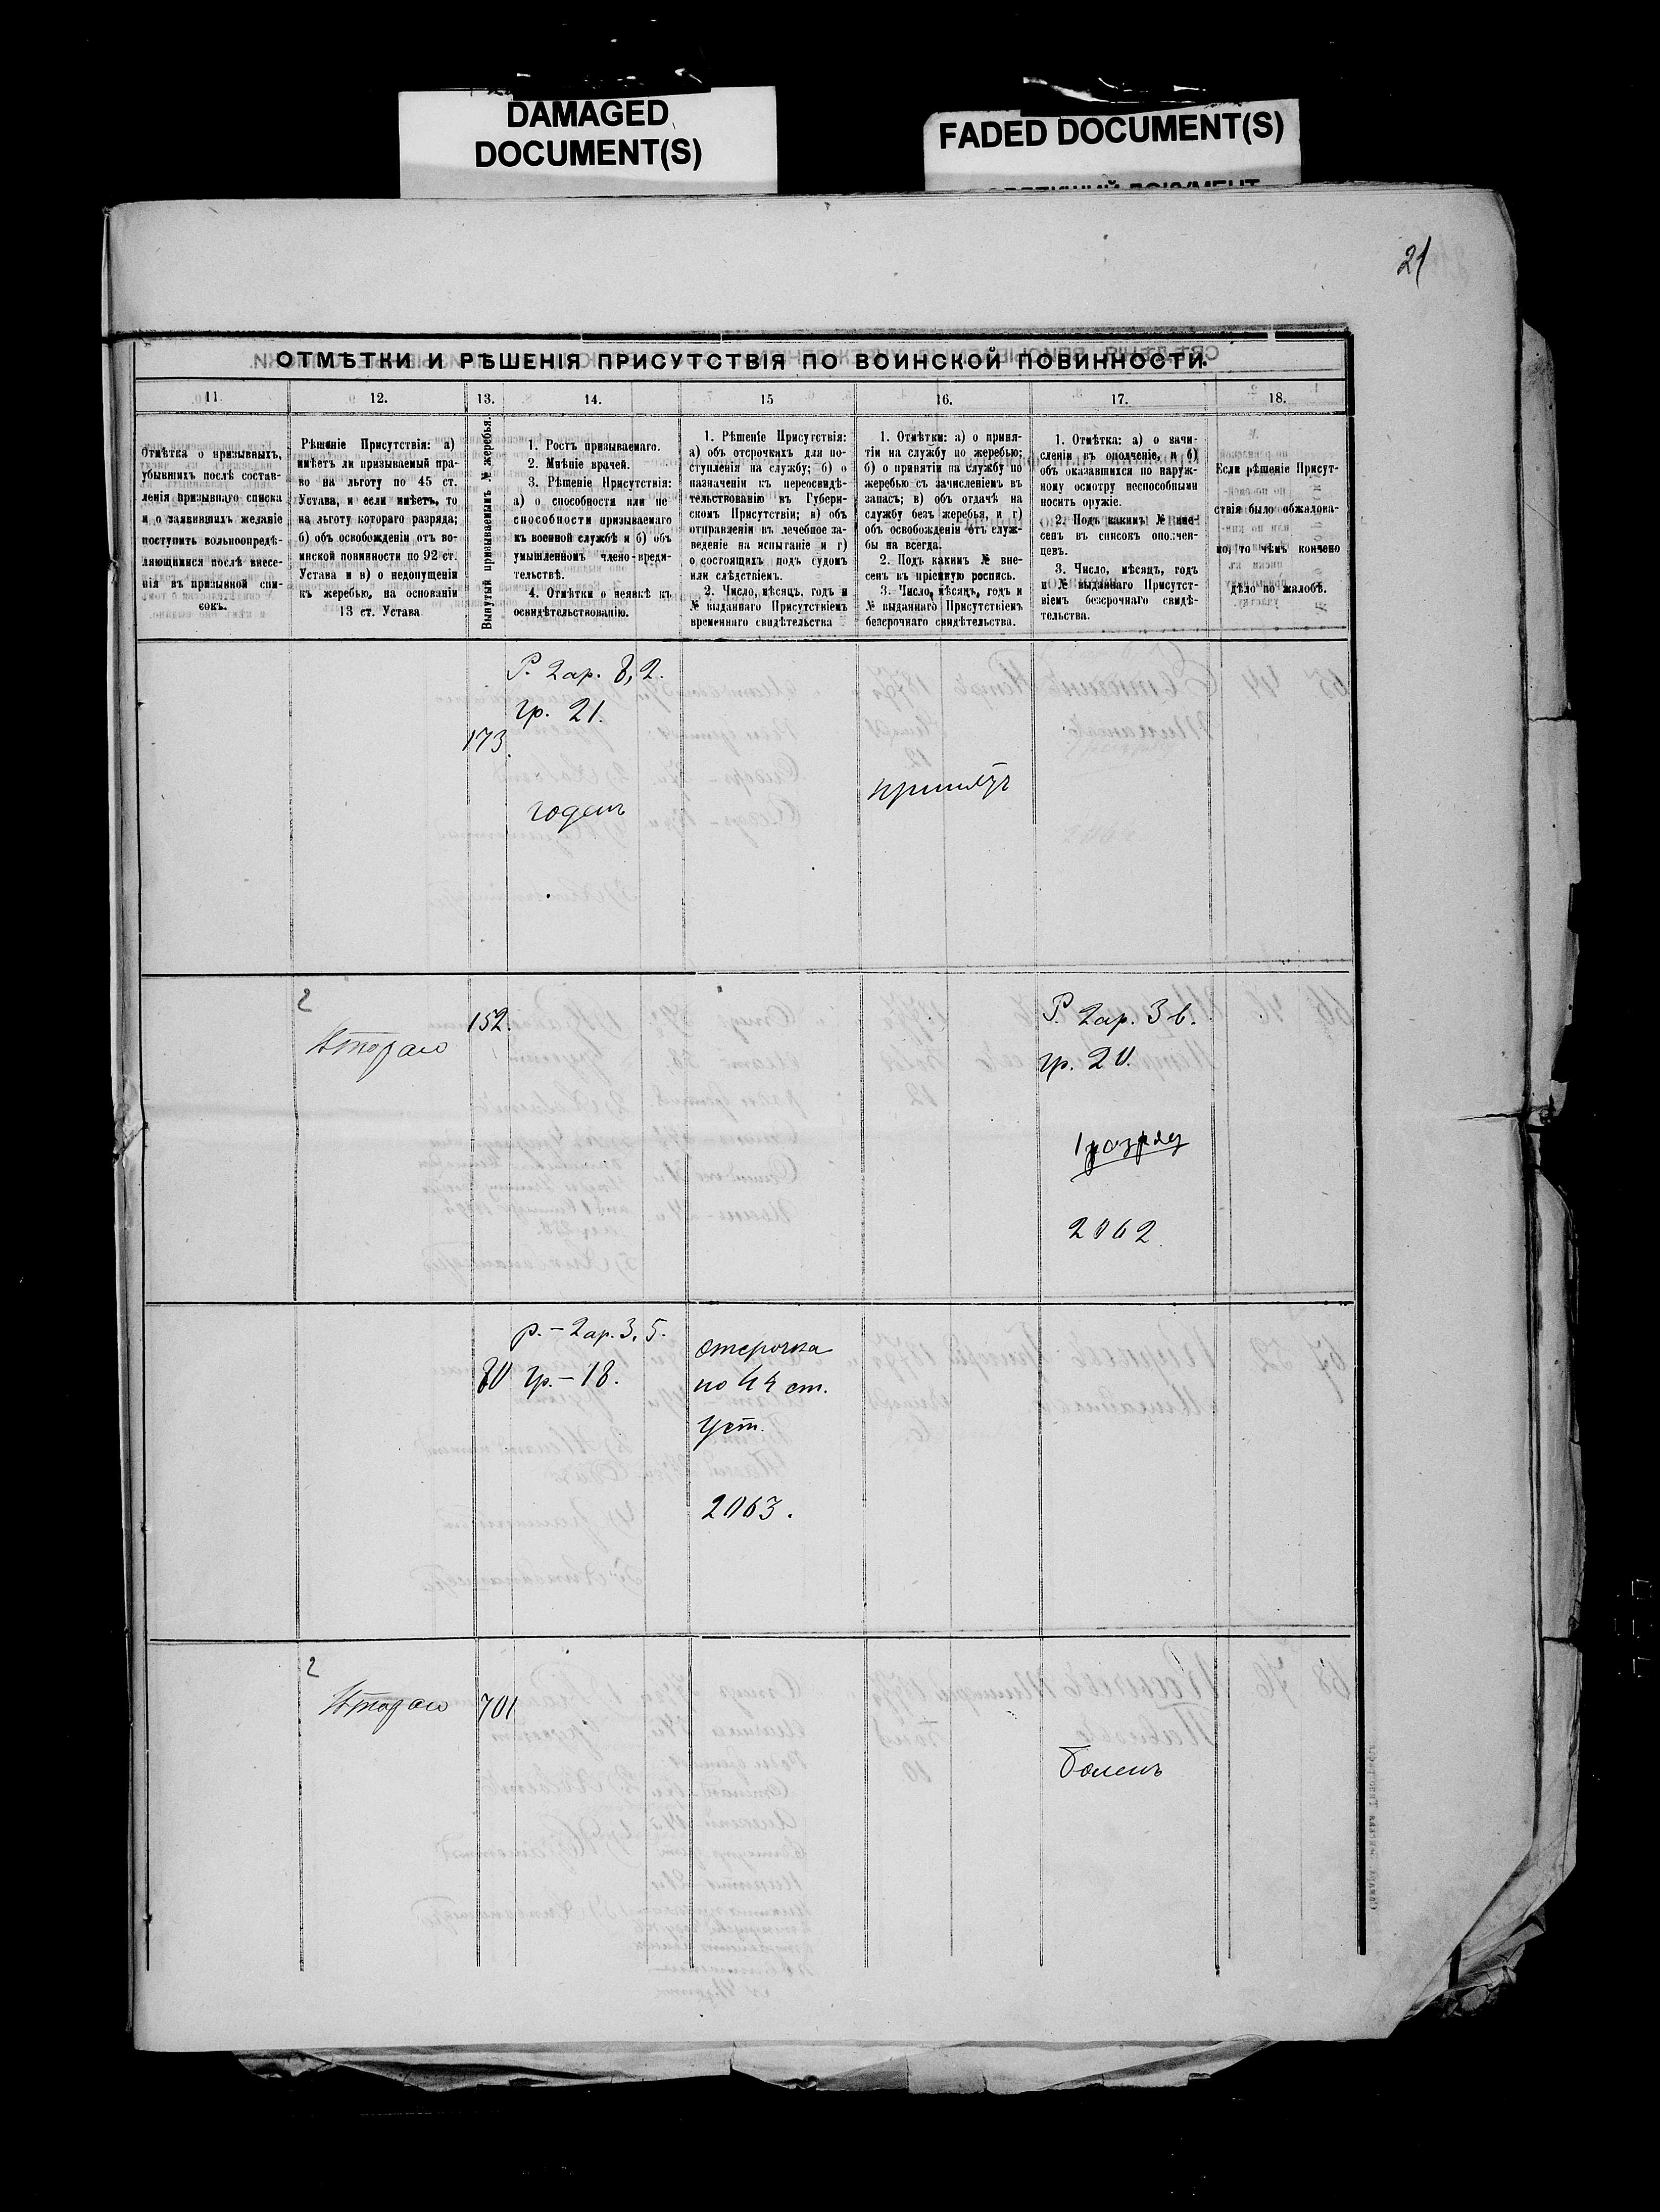 DAMAGED
DOCUMENT(S)
FADED DOCUMENT(S)
21
ОТМѢТКИ И РѢШЕНІЯ ПРИСУТСТВІЯ ПО ВОИНСКОЙ ПОВИННОСТИ.
11.
12.
13.
14.
15
16.
17.
18.
Отмѣтка о призывныхъ,
убывшихъ послѣ состав-
ленія призывнаго списка
и о заявившихъ желаніе
поступить вольноопредѣ-
ляющимися послѣ внесе-
нія въ призывной спи-
сокъ.
Рѣшеніе Присутствія: а)
имѣетъ ли призываемый пра-
во на льготу по 45 ст.
Устава, и если имѣетъ, то
на льготу котораго разряда;
б) объ освобожденіи отъ во-
инской повинности по 92 ст.
Устава и в) о недопущеніи
къ жеребью, на основаніи
13 ст. Устава
Вынутый призываемымъ № жеребья.
1. Ростъ призываемаго.
2. Мнѣніе врачей.
3. Рѣшеніе Присутствія:
а) о способности или не
способности призываемаго
къ военной службѣ и б) объ
умышленномъ члено-вреди-
тельствѣ.
4. Отмѣтки о неявкѣ къ
освидѣтельствованію.
1. Рѣшеніе Присутствія:
а) объ отсрочкахъ для по-
ступленія на службу; б) о
назначеніи къ переосвидѣ-
тельствованію въ Губерн-
скомъ Присутствіи; в) объ
отправленіи въ лечебное за-
веденіе на испытаніе и г)
о состоящихъ подъ судомъ
или слѣдствіемъ.
2. Число, мѣсяцъ, годъ и
№ выданнаго Присутствіемъ
временнаго свидѣтельства
1. Отмѣтки: а) о приня-
тіи на службу по жеребью;
б) о принятіи на службу по
жеребью съ зачисленіемъ въ
запасъ; в) объ отдачѣ на
службу безъ жеребья, и г)
объ освобожденіи отъ служ-
бы на всегда.
2. Подъ какимъ № вне-
сенъ въ пріемную роспись.
3. Число, мѣсяцъ, годъ и
№ выданнаго Присутствіемъ
безсрочнаго свидѣтельства.
1. Отмѣтка: а) о зачи-
сленіи въ ополченіе, и б)
объ оказавшихся по наруж-
ному осмотру неспособными
носить оружіе.
2. Подъ какимъ № вне-
сенъ въ списокъ ополчен-
цевъ.
3. Число, мѣсяцъ, годъ
и № выданнаго Присутст-
віемъ безсрочнаго свидѣ-
тельства.
Если рѣшеніе Присут-
ствія было обжалова-
но, то чѣмъ кончено
дѣло по жалобѣ.
173.
Р. 2 ар. 8, 2.
гр. 21.
годенъ
принятъ
2
Втораго
152.
Р. 2 ар. 3 в.
гр. 20.
1 разряд
2062
80
р. – 2 ар. 3, 5.
гр. – 18.
отсрочка
по 44 ст.
Уст.
2063.
2
Втораго
701
боленъ